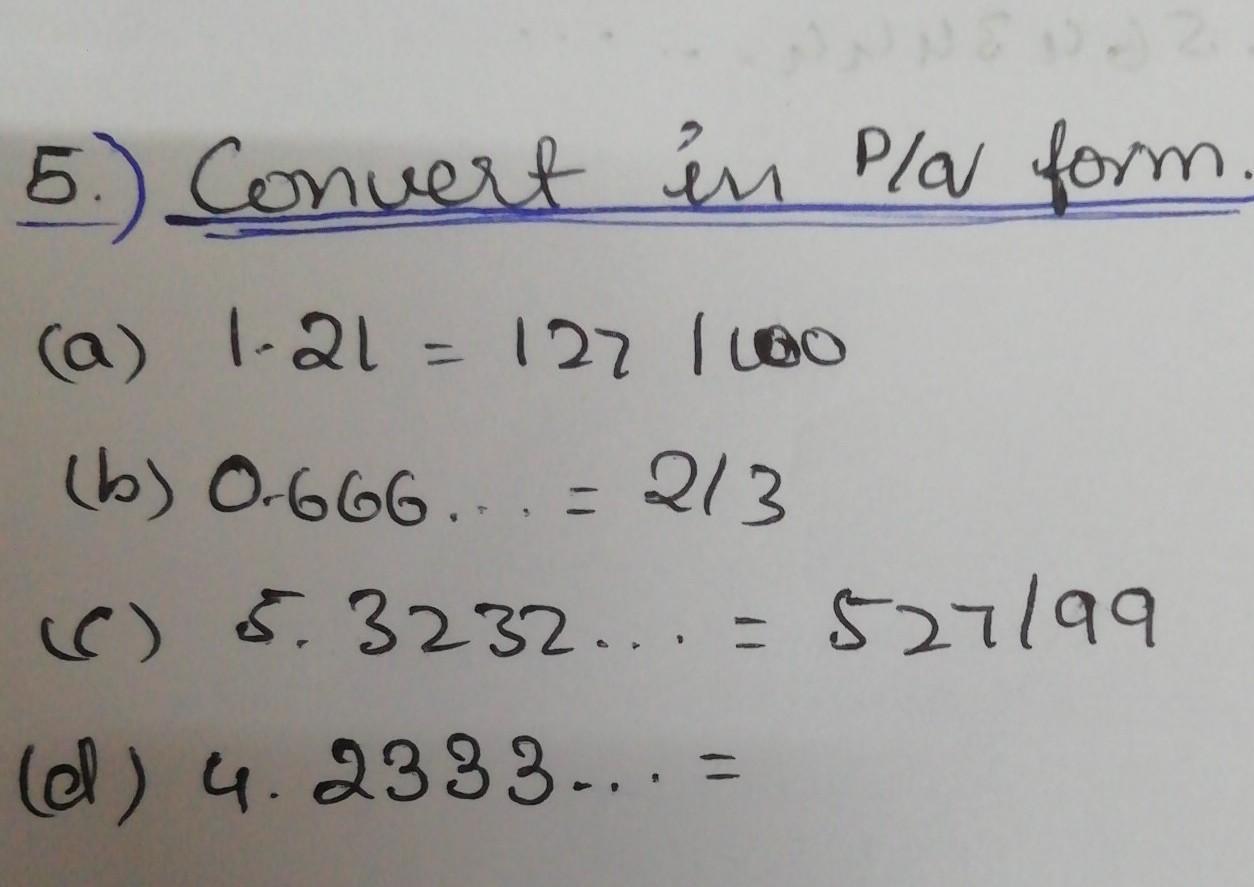 5.) Convert in P/q form.
(a) 1.21 = 127 / 100
(b) 0.666.... = 2/3
(c) 5.3232.... = 527/99
(d) 4.2333.... =